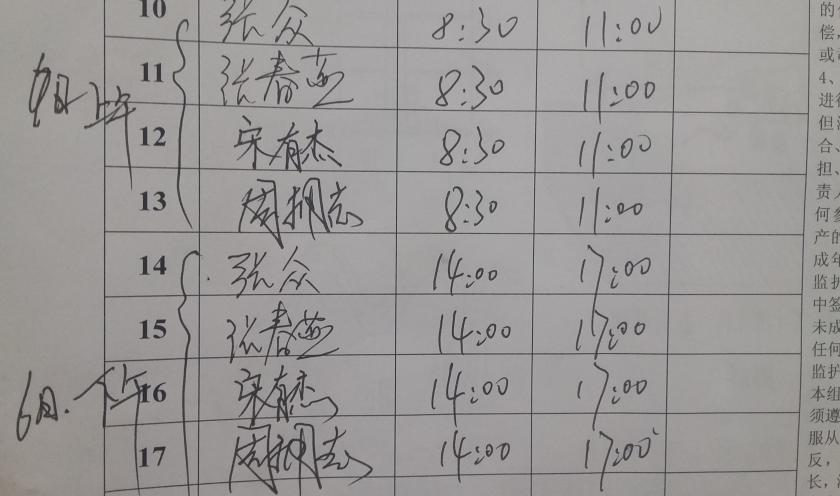 10 张众 8:30 11:00
11 张春燕 8:30 11:00
上午
12 宋有杰 8:30 11:00
13 周拥志 8:30 11:00
14 张众 14:00 17:00
15 张春燕 14:00 17:00
6月. 下午
16 宋有杰 14:00 17:00
17 周拥志 14:00 17:00
的
偿,
或
4、
进行
但
合、
担、
责
何
产的
成年
监护
中签
未成
任何
监护
本组
须遵
服从
反,
长,